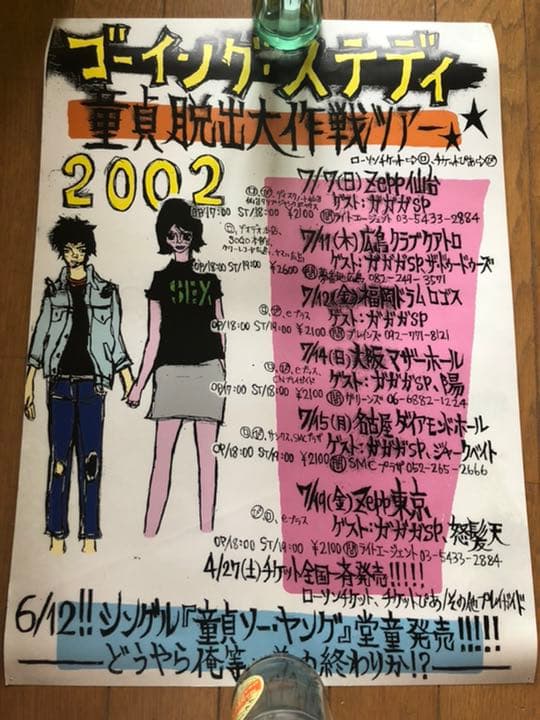 ゴーイング・ステディ
童貞脱出大作戦ツアー★★
2002
ローソンチケット⇨Ⓛ、チケットぴあ⇨ⓟ
7/7(日)Zepp仙台
ゲスト:ガガガSP
OP/17:00 ST/18:00 ¥2100 ㉄ライトエージェント 03-5433-2884
7/11(木)広島クラブクアトロ
ゲスト:ガガガSP、ザ・ドゥードゥーズ
OP/18:00 ST/19:00 ¥2600 ㉄夢番地広島 082-249-3571
SEX
7/12(金)福岡ドラムロゴス
Ⓛ、ⓟ、eプラス
ゲスト:ガガガSP
OP/18:00 ST/19:00 ¥2100 ㉄ブレインズ 092-771-8121
7/14(日)大阪マザーホール
Ⓛ、ⓟ、eプラス
CNプレイガイド
ゲスト:ガガガSP、陽
OP/17:00 ST/18:00 ¥2100 ㉄グリーンズ 06-6882-1224
7/15(月)名古屋ダイアモンドホール
Ⓛ、ⓟ、サンクス、SMCプラザ
ゲスト:ガガガSP、ジャークベイト
OP/18:00 ST/19:00 ¥2100 ㉄SMCプラザ 052-265-2666
7/19(金)Zepp東京
ⓟ、Ⓛ、eプラス
ゲスト:ガガガSP、怒髪天
OP/18:00 ST/19:00 ¥2100 ㉄ライトエージェント 03-5433-2884
4/27(土)チケット全国一斉発売!!!!!
ローソンチケット、チケットぴあ/その他プレイガイド
6/12!!シングル『童貞ソー・ヤング』堂童発売!!!!!
どうやら俺等 終わりか!?